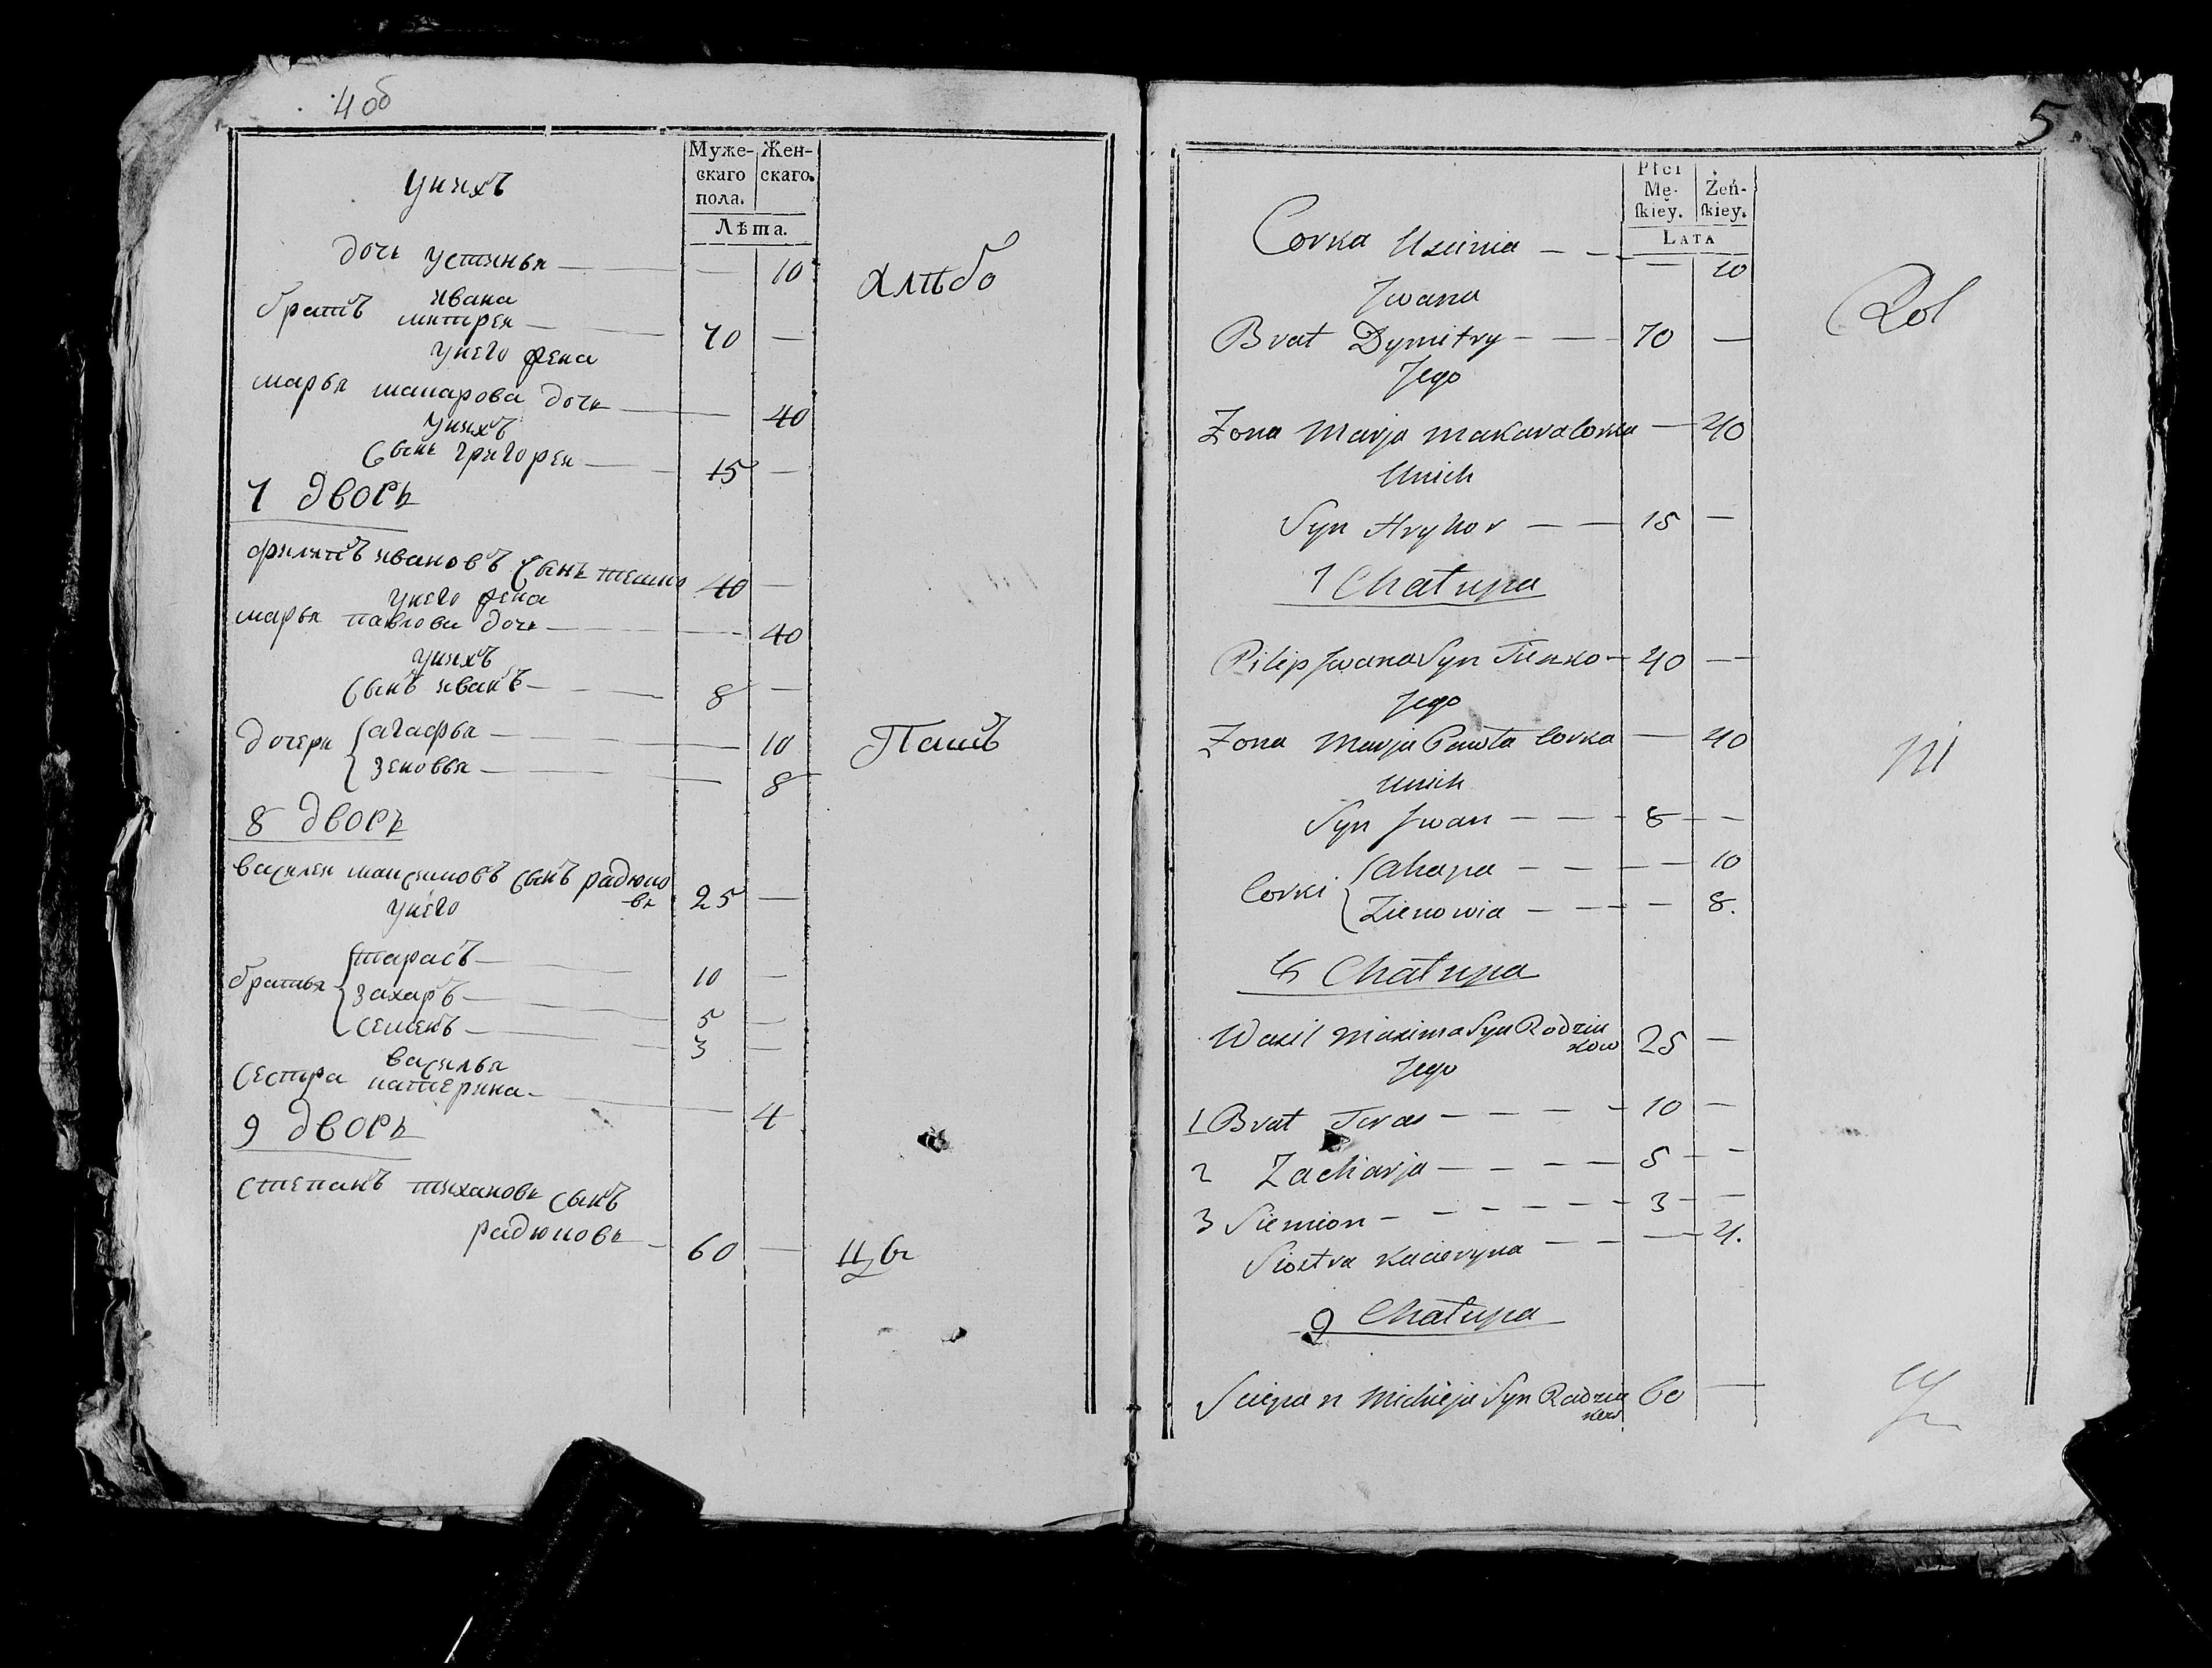 4 об
Муже-
скаго
пола.
Жен-
скаго.
Лѣта.
унихъ
дочь устинья — — 10
хлѣбо
ивана
братъ митрей — 70 —
унего жена
марья макарова дочь — 40
унихъ
сынъ григорей — 15 —
7 дворъ
филипъ ивановъ сынъ тешко 40 —
унего жена
марья павлова дочь — — 40
унихъ
сынъ иванъ — 8 —
дочери агафья — 10
Пашъ
зеновья — — 8
8 дворъ
василей максимовъ сынъ радюко
въ 25 —
унего
братья тарасъ — 10 —
захаръ — 5 —
семенъ — 3 —
василья
сестра катерина — — 4
9 дворъ
степанъ тихановъ сынъ
радюковъ — 60 —
5
Płci
Mę-
ſkiey.
Żeń-
ſkiey.
LATA
Corka Uscinia — — — 10
Rol
Jwana
Brat Dymitry — — 70 —
Jego
Zona Marja Makara Corka — 40
Unich
Syn Hryhor — — 15 —
7 Chałupa
Pilip Jwana Syn Tieszko — 40 —
Jego
Zona Marja Pawła Corka — 40
ni
Unich
Syn Jwan — — — 8 — —
Corki Ahapa — — — — 10
Zienowia — — — — 8.
8 Chałupa
Wasil Maxima Syn Rodziu
kow 25 —
Jego
1 Brat Taras — — — — 10 —
2 Zacharja — — — — 5 — —
3 Siemion — — — — — — 3 — —
Siostra Kacieryna — — — — 4.
9 Chałupa
Sciepan Michieja Syn Radziu
kow 60 —